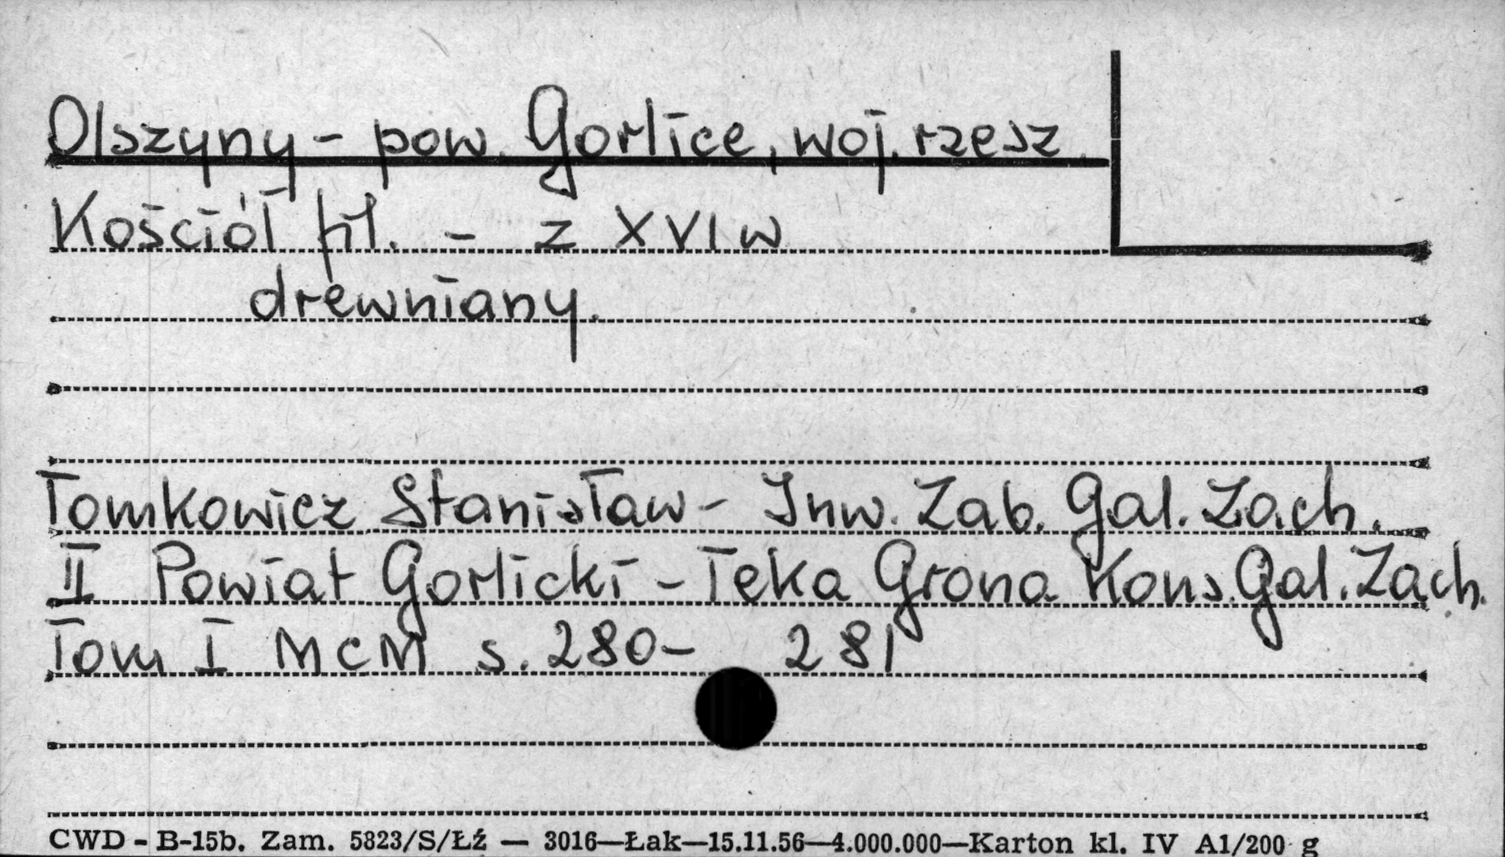 Olszyny - pow. Gorlice, woj. rzesz.
Kościół fil. - z XVI w
drewniany.
Tomkowicz Stanisław - Inw. Zab. Gal. Zach.
II Powiat Gorlicki - Teka Grona Kons. Gal. Zach.
Tom I MCM s. 280 - 281
CWD - B-15b. Zam. 5823/S/Łź — 3016—Łak—15.11.56—4.000.000—Karton kl. IV A1/200 g